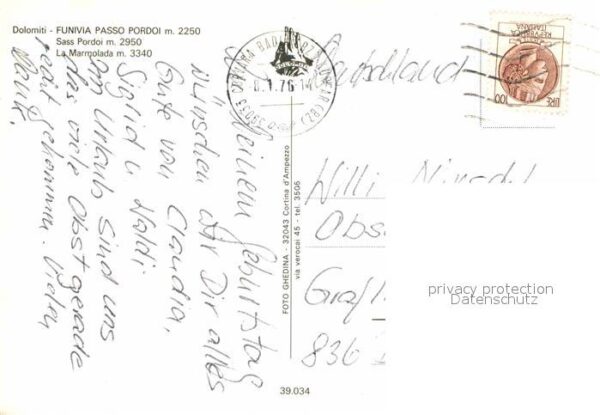 Dolomiti - FUNIVIA PASSO PORDOI m. 2250
Sass Pordoi m. 2950
La Marmolada m. 3340
Deinem Geburtstag
wünschen wir Dir alles
Gute von Claudia,
Sigrid u. Waldi.
Im Urlaub sind uns
das viele Obst gerade
recht gekommen. Vielen
Dank.
FOTO GHEDINA - 32043 Cortina d'Ampezzo
via verocai 45 - tel. 3506
39.034
CORVARA BADIA (BZ)
39033
.1.76-14
Deutschland
REPVBBLICA
ITALIANA
LIRE 100
Willi
Obs
Graf
836
privacy protection
Datenschutz